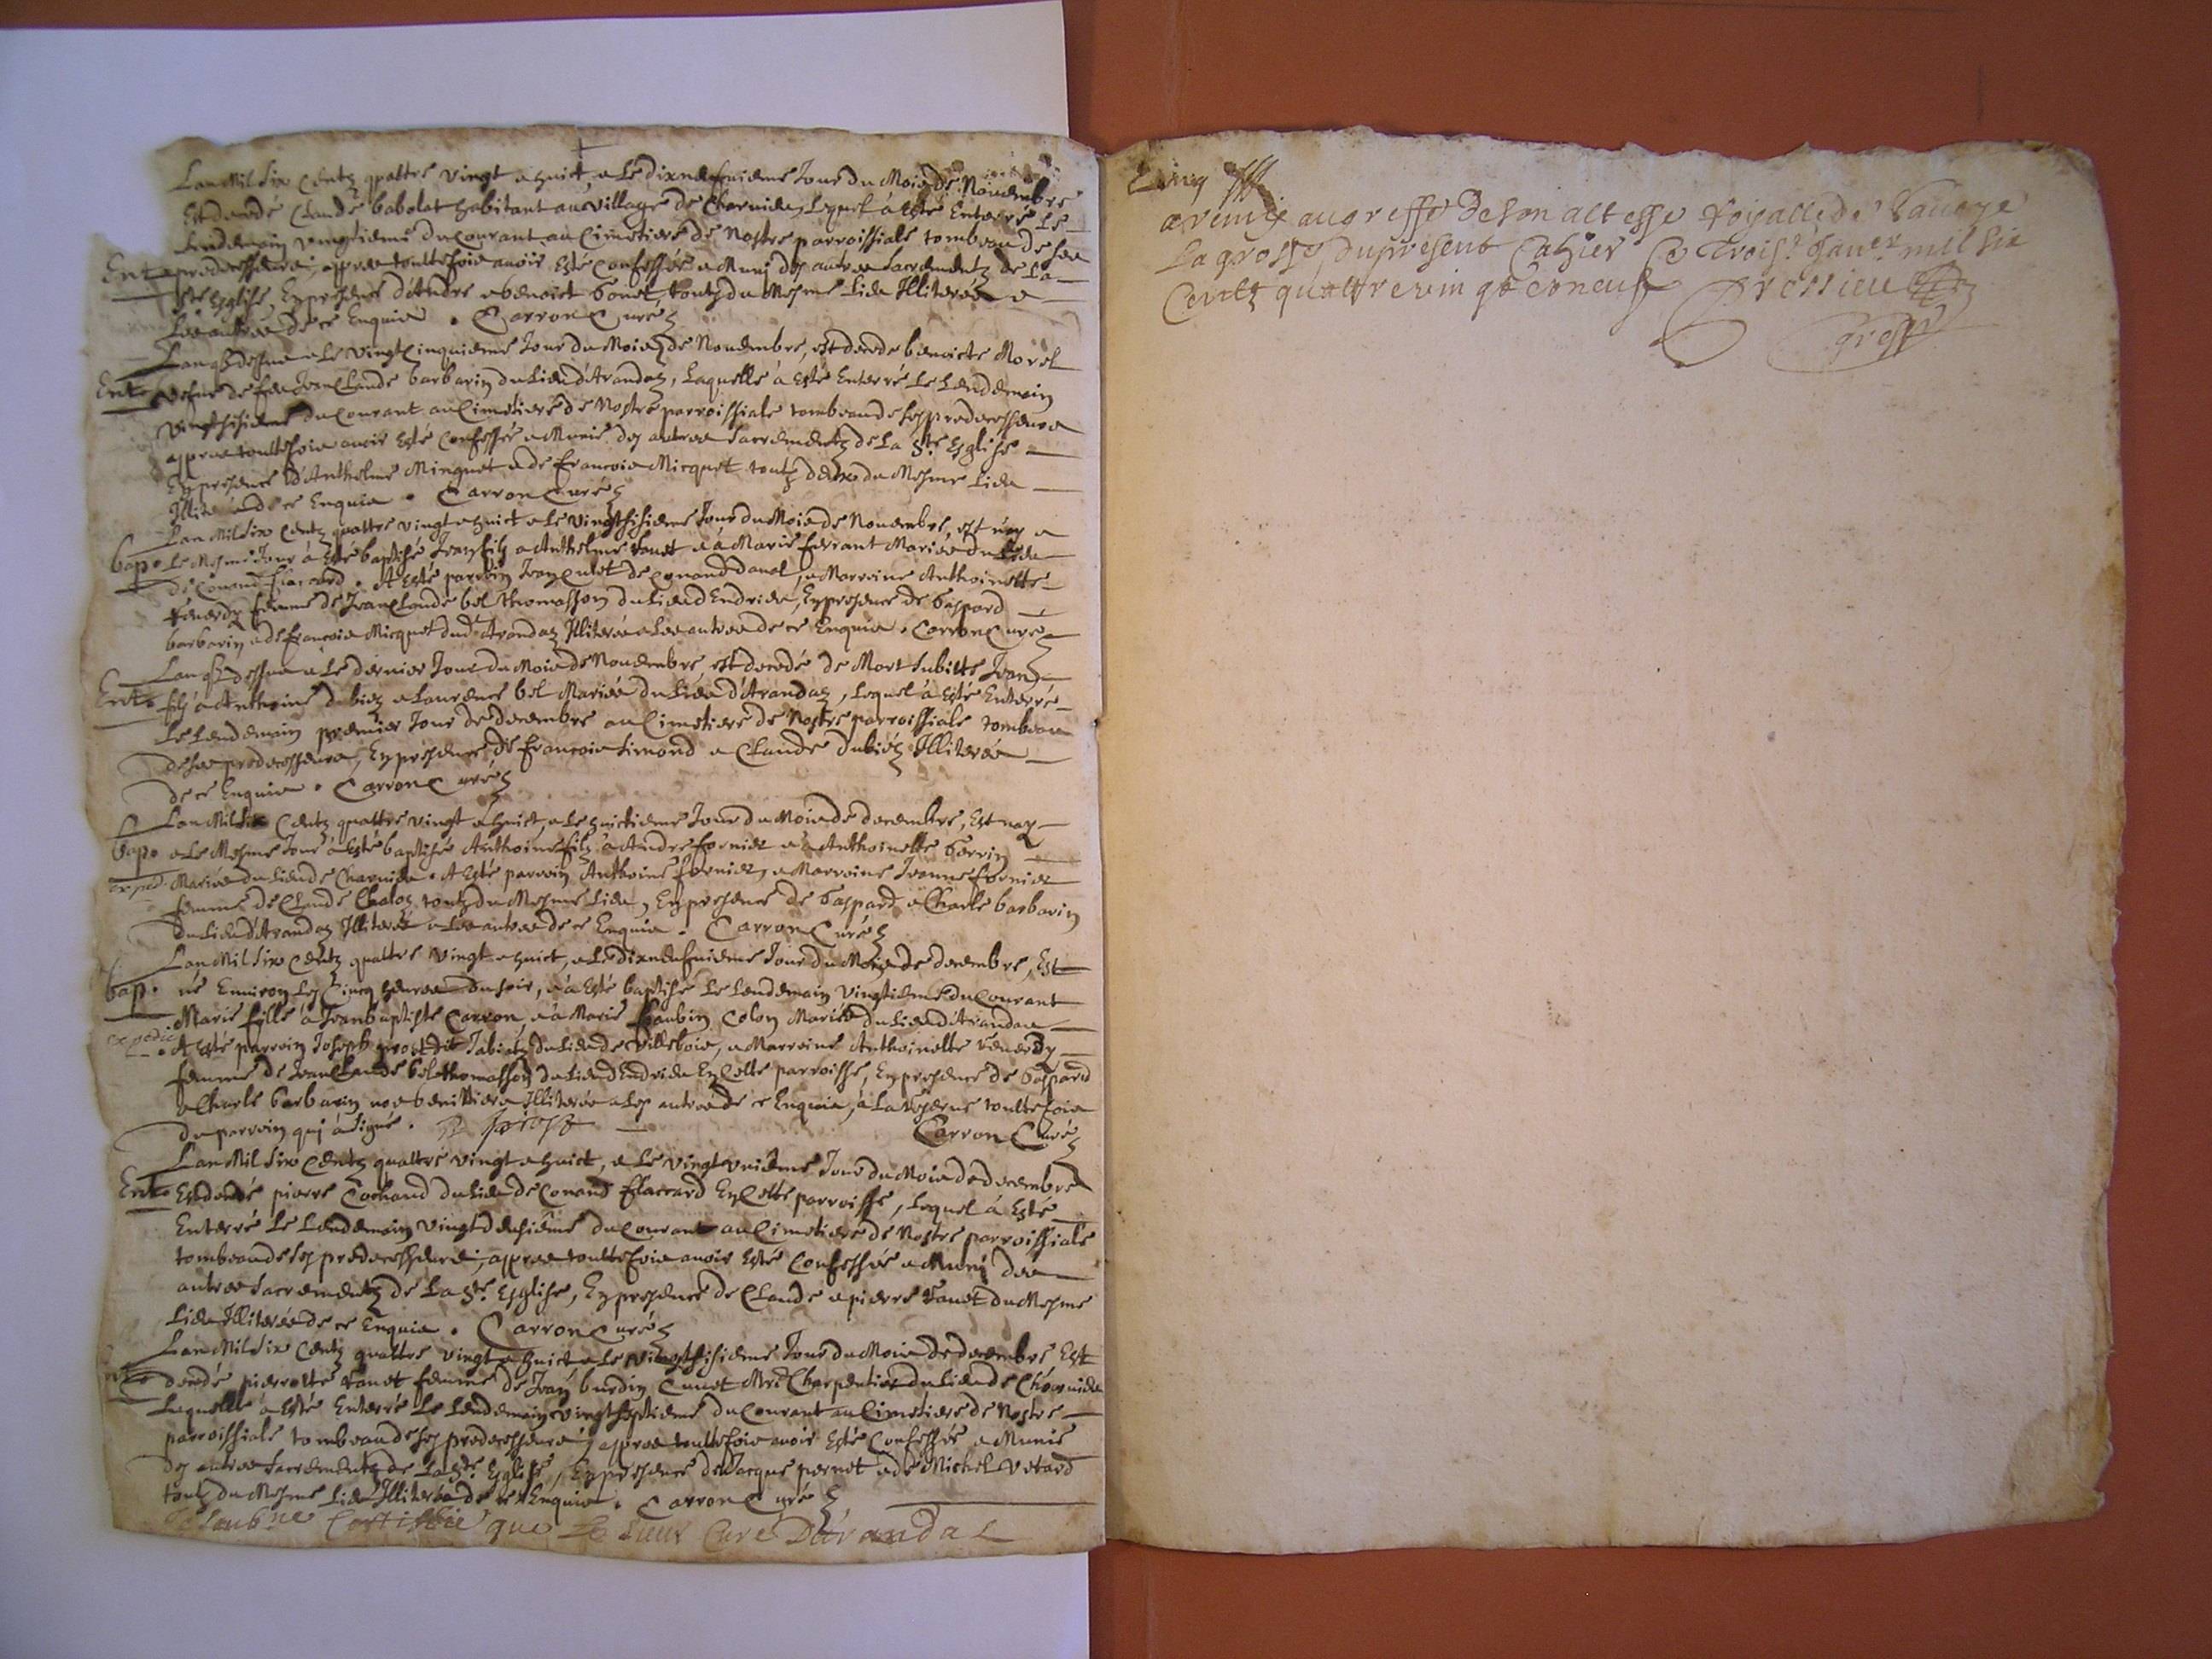 Lan Mil Six Centz quattre vingt e huict, e Le dixneufuieme Jour du Mois de Nouembre
Est decedé Claude babolat habitant au village de Charuieu, Lequel à Esté Enterré Le
Lendemain vingtieme du Courant au Cimetiere de Nostre parroissiale tombeau de ses
Ent. predecesseurs, appres touttefois auoir Esté Confessé e Muni des autres Sacrementz de La
Ste Esglise, En presence d'Andre e benoict bonet, toutz du Mesme Lieu Illiterés e
Les autres de ce Enquis. Carron Curé
Lan q dessus e Le vingt Cinquieme Jour du Mois de Nouembre, est decede benoicte Morel
Ent. vefue de feu Jean Claude barbarin du Lieu d'Arandaz, Laquelle à Esté Enterré Le Lendemain
vingtsisieme du Courant au Cimetiere de Nostre parroissiale tombeau de ses predecesseurs
appres touttefois auoir Esté Confessée e Munie des autres Sacrementz de La Ste Esglise
En presence d'Anthelme Minguet e de Francois Micquet toutz deux du Mesme Lieu
de ce Enquis. Carron Curé
Lan Mil Six Centz quattre vingt e huict e Le vingtsisieme Jour du Mois de Nouembre, est nay e
bap. Le Mesme Jour à Esté baptisé Jean filz a Anthelme e à Marie ferrant Mariés du Lieu
de Conand flaccard. A Esté parrein Jean de Conand daval, e Marreine Anthoinette
femme de Jean Claude bel Thomasson du Lieu d'Endrieu, En presence de Gaspard
barbarin e de Francois Micquet dud. Arandaz Illiterés e Les autres de ce Enquis. Carron Curé
Lan q dessus e Le dernier Jour du Mois de Nouembre, est decedé de Mort Subitte Jean
Ent. filz à Anthoine dubiez e Laurence bel Mariés du Lieu d'Arandaz, Lequel à Esté Enterré
Le Lendemain premier Jour de decembre au Cimetiere de Nostre parroissiale tombeau
de ses predecesseurs, En presence de Francois Simond e Claude dubiéz Illiterés
de ce Enquis. Carron Curé
Lan Mil Six Centz quattre vingt e huict, e Le huictieme Jour du Mois de decembre, Est nay
bap. e Le Mesme Jour à Esté baptisé Anthoine filz à Andre fornier e à Anthoinette
exped. Mariés du Lieu de Charuieu. A Esté parrein Anthoine fornier, e Marreine Jeanne fornier
femme de Claude toutz du Mesme Lieu, En presence de Gaspard e Charle barbarin
du Lieu d'Arandaz Illiterés e Les autres de ce Enquis. Carron Curé
Lan Mil Six Centz quattre vingt e huict, e Le dixneufuieme Jour du Mois de decembre, Est
bap. né Enuiron Les Cinq heures du soir, e à Esté baptisé Le Lendemain vingtieme du Courant
Marie fille à Jean baptiste Carron, e à Marie Colon Mariés du Lieu d'Arandas
expedie. A Esté parrein Joseph prost dit du Lieu de villebois, e Marreine Anthoinette
femme de Jean Claude bel thomasson du Lieu d'Endrieu En Cette parroisse, En presence de Gaspard
e Charle barbarin Illiterés e Les autres de ce Enquis, à La reserue touttefois
du parrein qui à signé. Carron Curé
Lan Mil Six Centz quattre vingt e huict, e Le vingt vnieme Jour du Mois de decembre
Ent. Est decedé pierre Cochaud du Lieu de Conand flaccard En Cette parroisse, Lequel à Esté
Enterré Le Lendemain vingt deusieme du Courant au Cimetiere de Nostre parroissiale
tombeau de ses predecesseurs, appres touttefois auoir Esté Confessé e Muni des
autres Sacrementz de La Ste Esglise, En presence de Claude e pierre du Mesme
Lieu Illiterés de ce Enquis. Carron Curé
Lan Mil Six Centz quattre vingt e huict e Le vingtsisieme Jour du Mois de decembre Est
decedé pierrotte femme de Jean burdin Cunet Mre Charpentier du Lieu de Charuieu
Laquelle à Esté Enterré Le Lendemain vingtseptieme du Courant au Cimetiere de Nostre
parroissiale tombeau de ses predecesseurs, appres touttefois auoir Esté Confessée e Munie
des autres Sacrementz de La Ste Esglise, En presence de Jacque pernet e de Michel
toutz du Mesme Lieu Illiterés de ce Enquis. Carron Curé
Je soubne Certiffie que Le sieur Curé Darandas
a remis au greffe de son altesse royalle de Sauoye
La grosse du present Cahier Ce trois.e Jan.er mil six
Centz quattre vingt e neuf Dressieu
greff